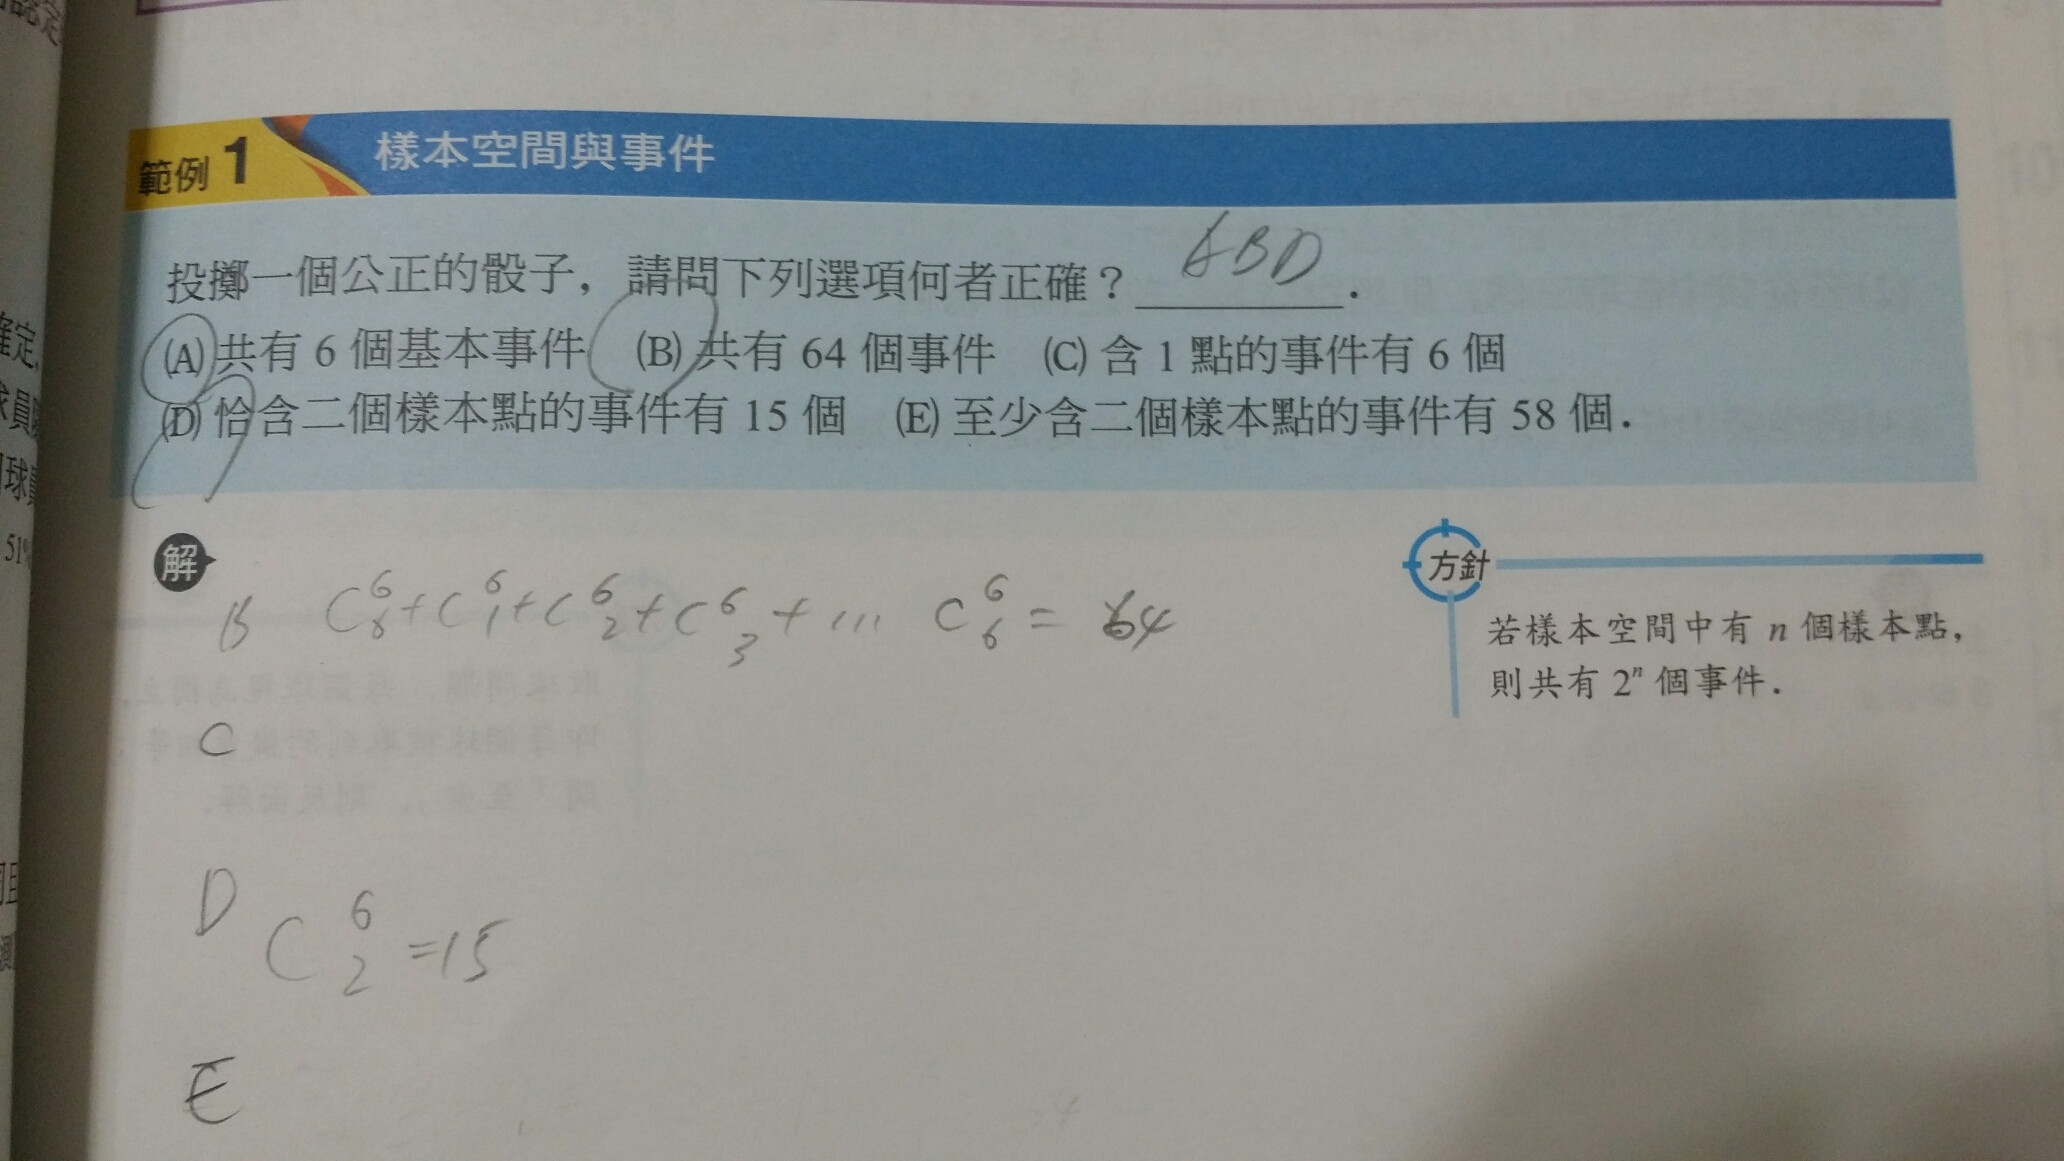 範例 1 樣本空間與事件
投擲一個公正的骰子，請問下列選項何者正確？ ABD .
(A) 共有 6 個基本事件 (B) 共有 64 個事件 (C) 含 1 點的事件有 6 個
(D) 恰含二個樣本點的事件有 15 個 (E) 至少含二個樣本點的事件有 58 個.
解
方針
若樣本空間中有 n 個樣本點，
則共有 2ⁿ 個事件.
B C⁶₀+C⁶₁+C⁶₂+C⁶₃+... C⁶₆ = 64
C
D C⁶₂=15
E
51%